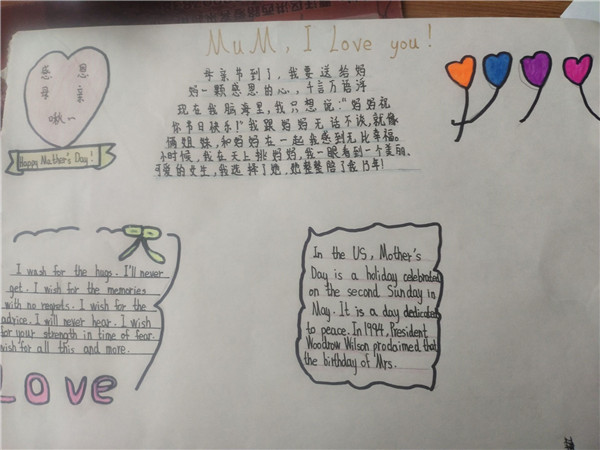 MuM, I Love you!
感 恩
母 亲
啾一
Happy Mother's Day!
母亲节到了,我要送给妈
妈一颗感恩的心,千言万语浮
现在我脑海里,我只想说:“妈妈祝
你节日快乐!”我跟妈妈无话不谈,就像
俩姐妹,和妈妈在一起我感到无比幸福。
小时候,我在天上挑妈妈,我一眼看到一个美丽、
可爱的女生,我选择了她,她整整陪了我13年!
I wash for the hugs. I'll never
get. I wish for the memories
with no regrets. I wish for the
advice. I will never hear. I wish
for your strength in time of fear.
wish for all this and more.
Love
In the US, Mother's
Day is a holiday celebrated
on the second Sunday in
May. It is a day dedicated
to peace. In 1994. President
Woodrow Wilson prodaimed that
the birthday of Mrs.